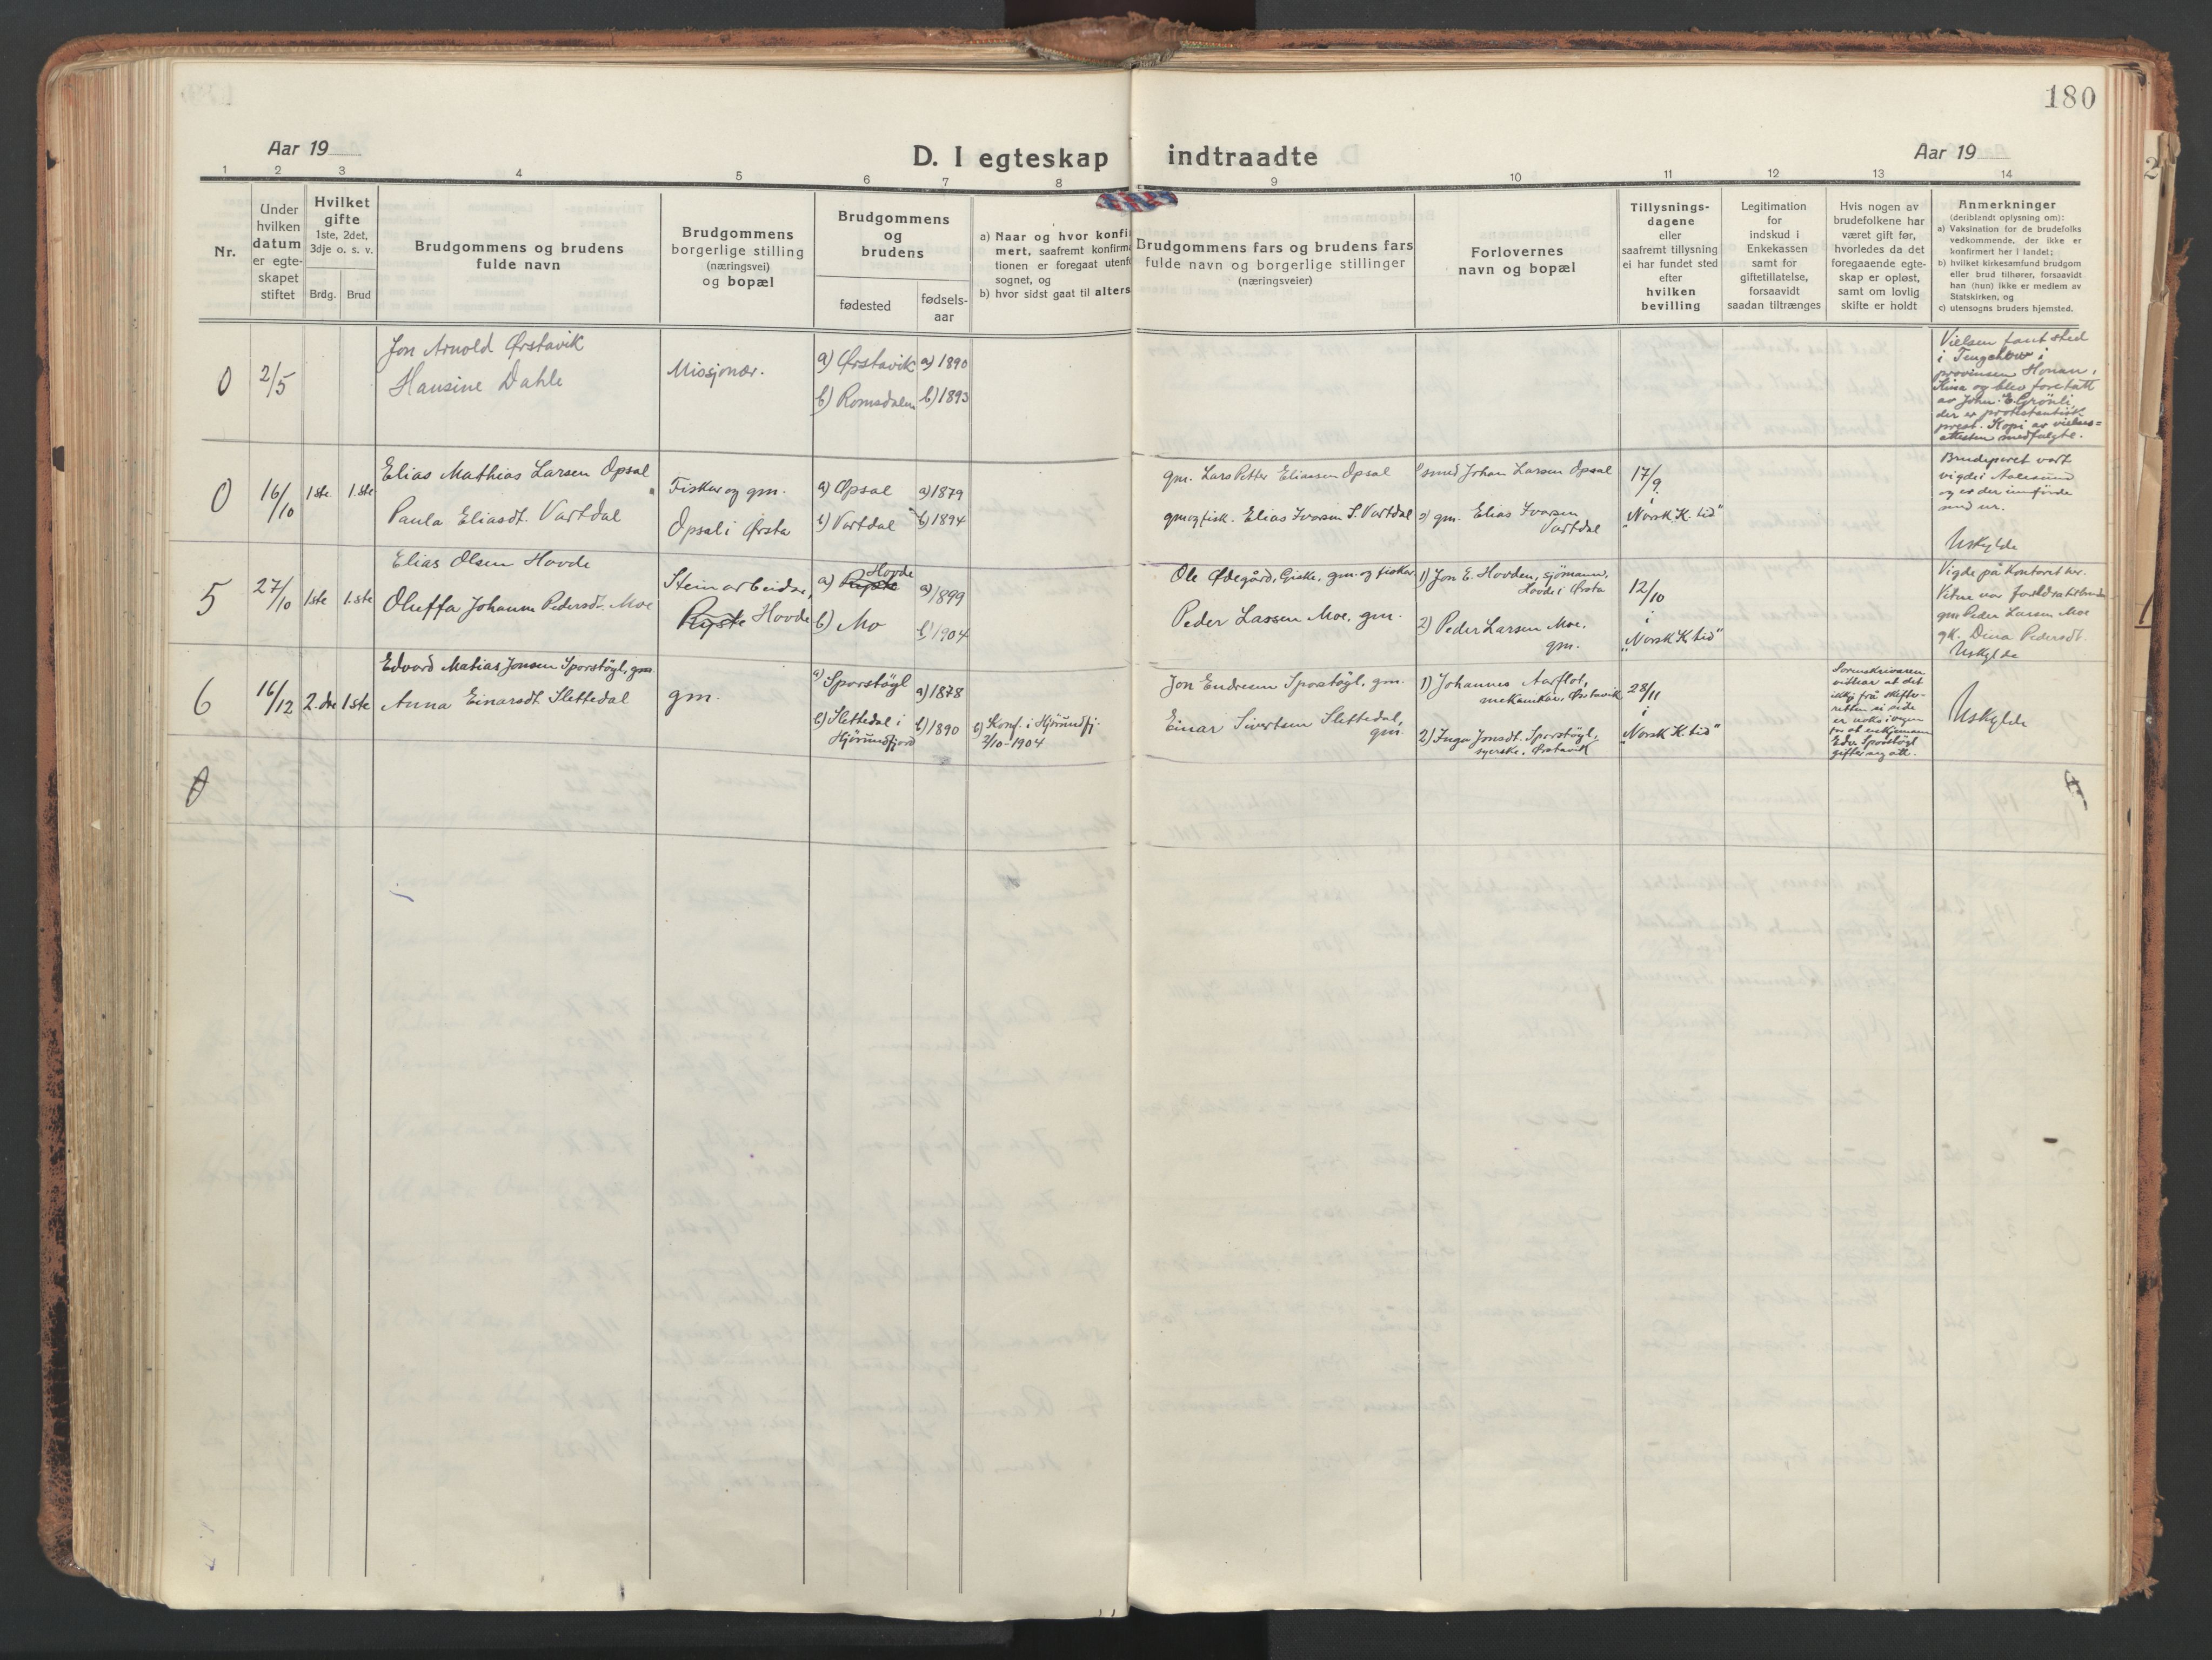 180
Aar 19
D. I egteskap indtraadte
Aar 19
1 2 3 4 5 6 7 8 9 10 11 12 13 14
Nr.
Under
hvilken
datum
er egte-
skapet
stiftet
Hvilket
gifte
1ste, 2det,
3dje o. s. v.
Brdg.
Brud
Brudgommens og brudens
fulde navn
Brudgommens
borgerlige stilling
(næringsvei)
og bopæl
Brudgommens
og
brudens
fødested
fødsels-
aar
a) Naar og hvor konfi
mert, saafremt konfirma
tionen er foregaat utenfo
sognet, og
b) hvor sidst gaat til alters
Brudgommens fars og brudens fars
fulde navn og borgerlige stillinger
(næringsveier)
Forlovernes
navn og bopæl
Tillysnings-
dagene
eller
saafremt tillysning
ei har fundet sted
efter
hvilken
bevilling
Legitimation
for
indskud i
Enkekassen
samt for
giftetillatelse,
forsaavidt
saadan tiltrænges
Hvis nogen av
brudefolkene har
været gift før,
hvorledes da det
foregaaende egte-
skap er opløst,
samt om lovlig
skifte er holdt
Anmerkninger
(deriblandt oplysning om):
a) Vaksination for de brudefolks
vedkommende, der ikke er
konfirmert her i landet;
b) hvilket kirkesamfund brudgom
eller brud tilhører, forsaavidt
han (hun) ikke er medlem av
Statskirken, og
c) utensogns bruders hjemsted.
0
2/5
Jon Arnold Ørstavik
Hansine Dahle
Missjonær.
a) Ørstavik
a) 1890
b) Romsdalen
b) 1893
Vielsen fant sted
i Tengchow i
provinsen Honan,
Kina og blev foretatt
av John. E. Grönli,
der er protestantisk
prest. Kopi av vielses=
attesten medfulgte.
0
16/10
1ste
1.ste
Elias Mathias Larsen Opsal
Paula Eliasdt. Vartdal
Fiskar og gm.
Opsal i Ørsta
a) Opsal
a) 1879
b) Vartdal
b) 1894
gm. Lars Petter Eliassen Opsal
gm og fisk. Elias Ivarsen S. Vartdal
smed Johan Larsen Opsal
2) gm. Elias Ivarsen
Vartdal
17/9
i
"Norsk K. tid"
Brudeparet vart
vigde i Aalesund
og er der innförde
med nr.
Uskylde
5
27/10
1ste
1.ste
Elias Olsen Hovde
Oluffa Johanne Pedersdt. Moe
Steinarbeidar,
Ryste Hovde
a) Ryste Hovde
a) 1899
b) Mo
b) 1904
Ole Ødegård, Giske, gm. og fiskar
Peder Larsen Moe, gm.
1) Jon E. Hovden, sjömann,
Hovde i Ørsta
2) Peder Larsen Moe,
gm.
12/10
i
"Norsk K. tid"
Vigde på Kontoret her.
Vitne var foreldra til bruda
gm Peder Larsen Moe
gk. Dina Pedersdt.
Uskylde
6
16/12
2.dre
1ste
Edvard Matias Jonsen Sporstøyl, gm
Anna Einarsdt. Slettedal
gm.
a) Sporstøyl
a) 1878
b) Slettedal i
Hjörundfjord
b) 1890
b) Konf. i Hjörundfj.
2/10-1904
Jon Endresen Sporstøyl, gm.
Einar Sivertsen Slettedal,
gm.
1) Johannes Aarflot,
mekanikar, Ørstavik
2) Inga Jonsdt. Sporstøyl,
syerske, Ørstavik
28/11
i
"Norsk K. tid"
Sorenskrivaren
vitnar at det
ikkje frå skifte-
retten si side
er noko i vegen
for at enkjemann
Edv. Sporstøyl
gifter seg att.
Uskylde
0